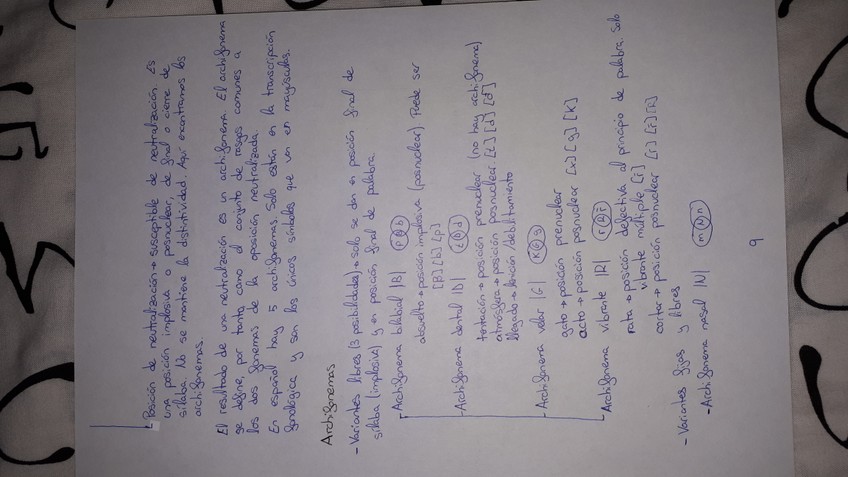 Posición de neutralización → susceptible de neutralización. Es
una posición implosiva o posnuclear, de final o cierre de
sílaba. No se mantiene la distintividad. Aquí encontramos los
archifonemas.
El resultado de una neutralización es un archifonema. El archifonema
se define, por tanto, como el conjunto de rasgos comunes a
los dos fonemas de la oposición neutralizada.
En español hay 5 archifonemas. Solo están en la transcripción
fonológica y son los únicos símbolos que van en mayúsculas.
Archifonemas
- Variantes libres (3 posibilidades) → solo se dan en posición final de
sílaba (implosiva) y en posición final de palabra.
- Archifonema bilabial |B| p B b
absuelto → posición implosiva (posnuclear) Puede ser
[β] [b] [p]
- Archifonema dental |D| t D d
tentación → posición prenuclear (no hay archifonema)
atmósfera → posición posnuclear [t] [d] [đ]
llegado → lenición/debilitamiento
- Archifonema velar |G| K G g
gato → posición prenuclear
acto → posición posnuclear [γ] [g] [K]
- Archifonema vibrante |R| r R r̄
rata → posición defectiva al principio de palabra. Solo
vibrante múltiple [r̄]
cortar → posición posnuclear [r] [r̄] [R]
- Variantes fijas y libres
- Archifonema nasal |N| m N n
9